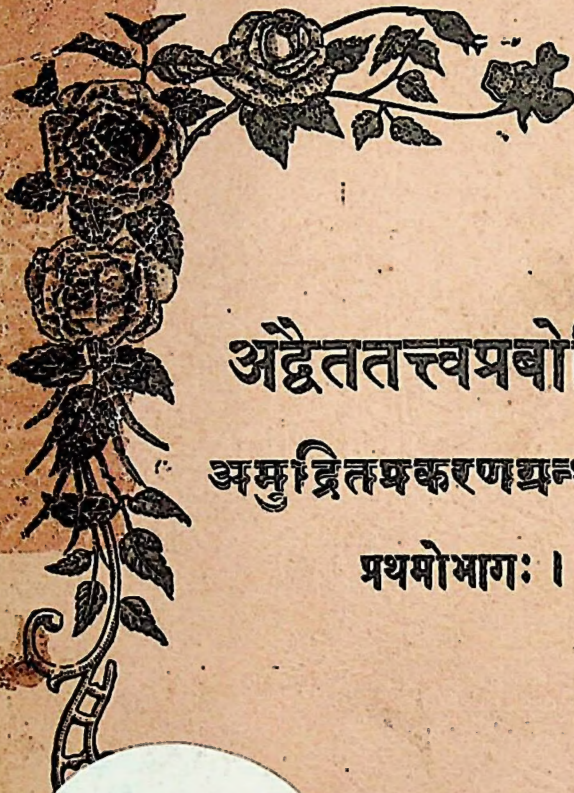 अद्वैततत्त्वप्रबो
अमुद्रितप्रकरणग्रन्
प्रथमोभागः ।